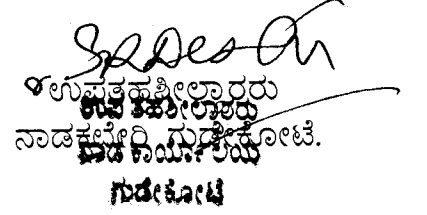 ಉಪತಹಶೀಲ್ದಾರರು
ಉಪ ತಹಶೀಲ್ದಾರರು
ನಾಡಕಛೇರಿ ಗುಡೇಕೋಟೆ.
ನಾಡ ಕಾರ್ಯಾಲಯ
ಗುಡೇಕೋಟೆ